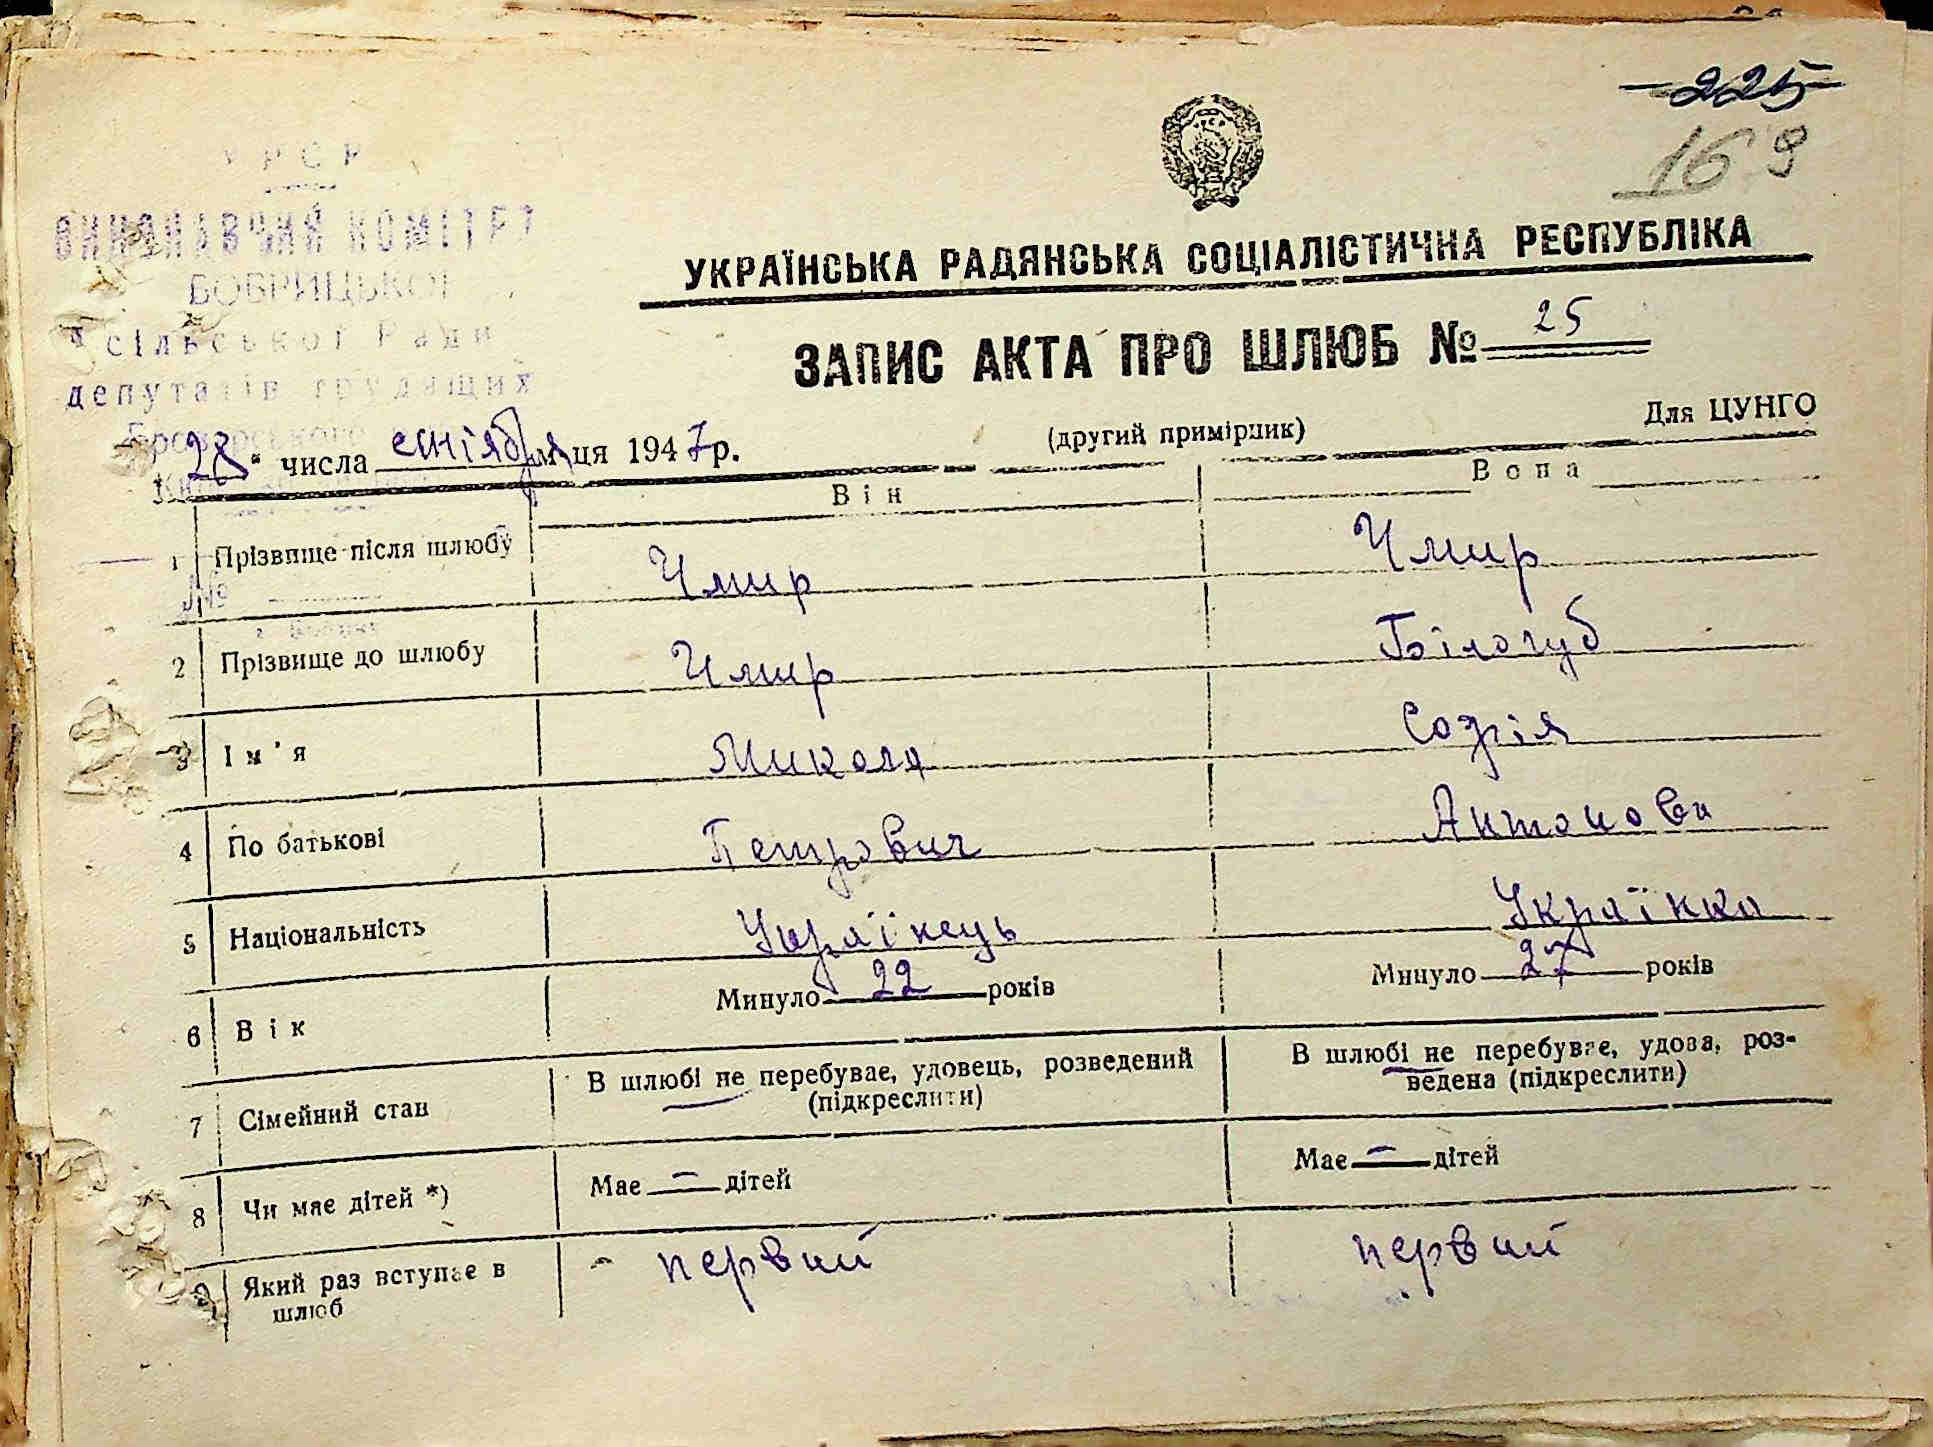 225
169
УРСР
ВИКОНАВЧИЙ КОМІТЕТ
БОБРИЦЬКОЇ
сільської Ради
депутатів трудящих
УКРАЇНСЬКА РАДЯНСЬКА СОЦІАЛІСТИЧНА РЕСПУБЛІКА
ЗАПИС АКТА ПРО ШЛЮБ № 25
"28" числа сентября м-ця 1947 р.
(другий примірник)
Для ЦУНГО
Він Вона
1 Прізвище після шлюбу Чмир Чмир
№
2 Прізвище до шлюбу Чмир Білогуб
3 Ім'я Микола Софія
4 По батькові Петрович Антонова
5 Національність Українець Українка
6 Вік Минуло 22 років Минуло 27 років
7 Сімейний стан В шлюбі не перебуває, удовець, розведений (підкреслити) В шлюбі не перебуває, удова, роз-
ведена (підкреслити)
8 Чи має дітей *) Має — дітей Має — дітей
9 Який раз вступає в первий первий
шлюб